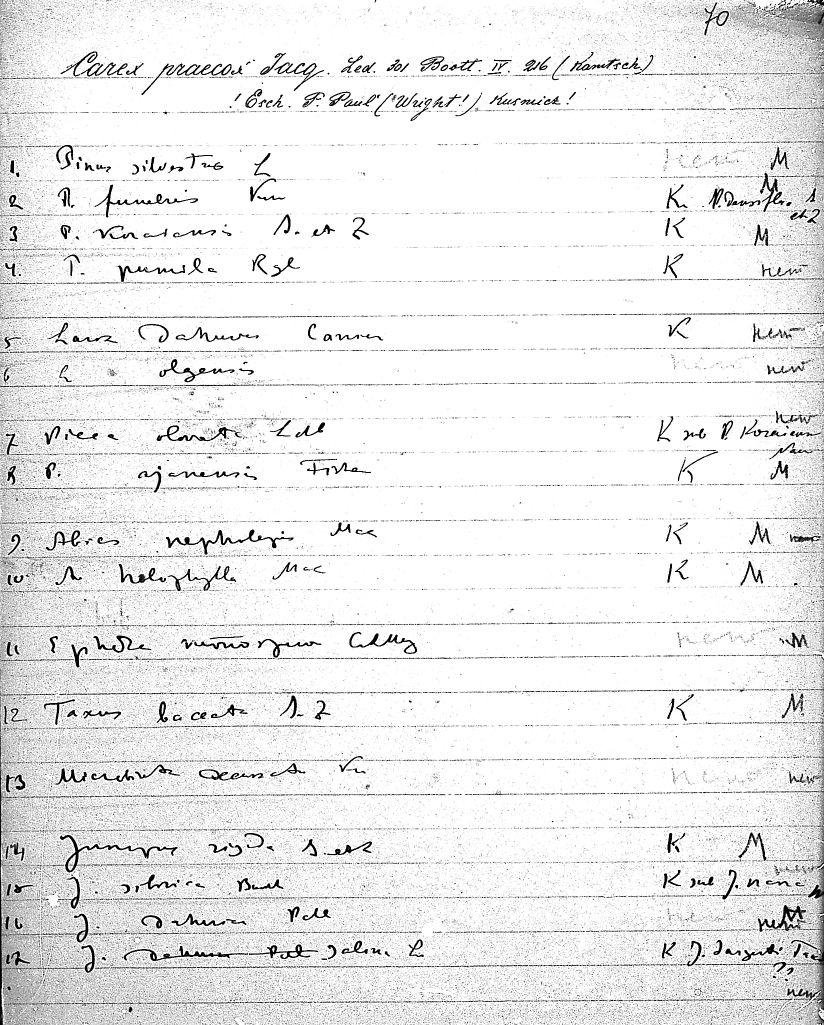 70
Carex praecox Jacq. Led. 301 Boott. IV. 216 (Kamtsch)
! Esch. F. Paul (Wright!) Kusmicz!
1. Pinus silvestris L nem M
2 P. funebris K P. Densiflora S et Z M
3 P. Koraiensis S. et Z K M
4. P. pumila Rgl K nem
5 Larix Dahurica K nem
6 L olgensis nem new
7 Picea obovata Ldb K sub P. Koraiensis new
8 P. ajanensis Fisch K M
9. Abies nephrolepis Max K M
10 A holophylla Max K M
11 Ephedra monosperma nem M
12 Taxus baccata S. Z K M
13 Microbiota decussata nem new
14 Juniperus rigida S. et Z K M
15 J. sibirica K sub J. nana
16 J. dahurica Pall nem
17 J. L K J.
?? new